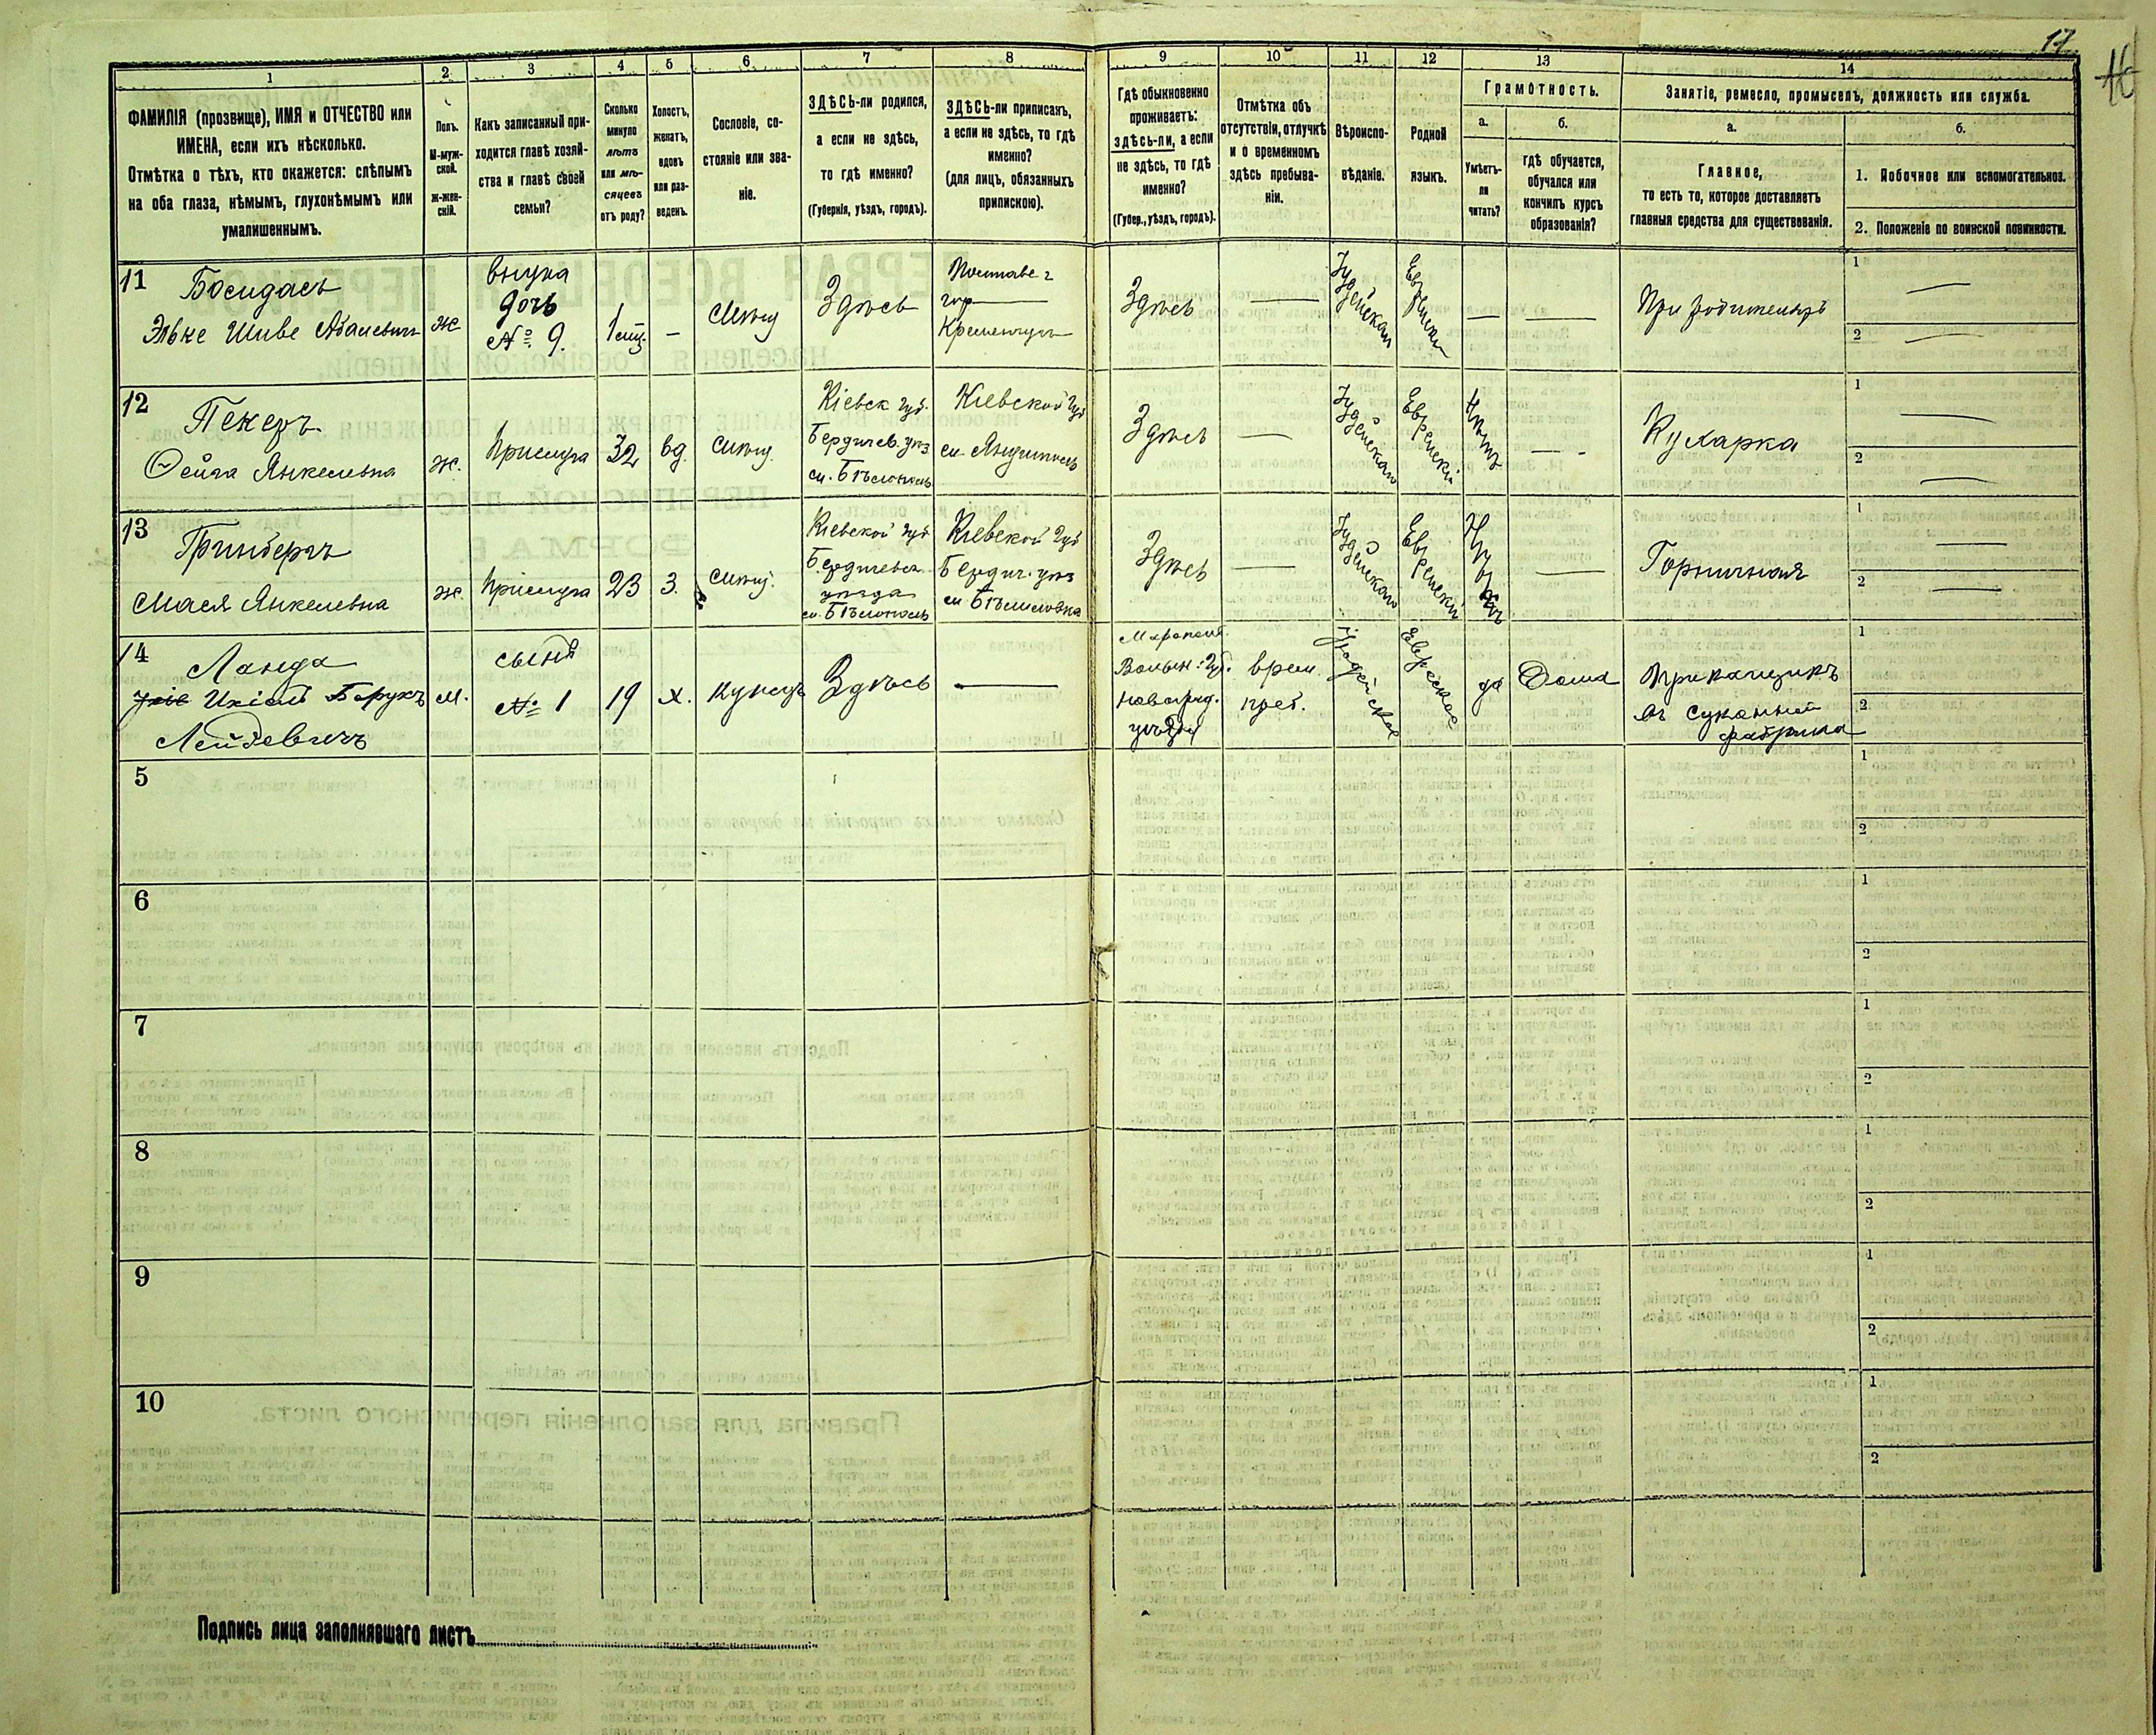 17
1 2 3 4 5 6 7 8 9 10 11 12 13 14
ФАМИЛІЯ (прозвище), ИМЯ и ОТЧЕСТВО или
ИМЕНА, если ихъ нѣсколько.
Отмѣтка о тѣхъ, кто окажется: слѣпымъ
на оба глаза, нѣмымъ, глухонѣмымъ или
умалишеннымъ.
Полъ.
М-муж-
ской.
Ж-жен-
скій.
Какъ записанный при-
ходится главѣ хозяй-
ства и главѣ своей
семьи?
Сколько
минуло
лѣтъ
или мѣ-
сяцевъ
отъ роду?
Холостъ,
женатъ,
вдовъ
или раз-
веденъ.
Сословіе, со-
стояніе или зва-
ніе.
ЗДѢСЬ-ли родился,
а если не здѣсь,
то гдѣ именно?
(Губернія, уѣздъ, городъ).
ЗДѢСЬ-ли приписанъ,
а если не здѣсь, то гдѣ
именно?
(для лицъ, обязанныхъ
припискою).
Гдѣ обыкновенно
проживаетъ:
здѣсь-ли, а если
не здѣсь, то гдѣ
именно?
(Губер., уѣздъ, городъ).
Отмѣтка объ
отсутствіи, отлучкѣ
и о временномъ
здѣсь пребыва-
ніи.
Вѣроиспо-
вѣданіе.
Родной
языкъ.
Грамотность.
а.
Умѣетъ-
ли
читать?
б.
гдѣ обучается,
обучался или
кончилъ курсъ
образованія?
Занятіе, ремесло, промыселъ, должность или служба.
а.
Главное,
то есть то, которое доставляетъ
главныя средства для существованія.
б.
1. Побочное или вспомогательное.
2. Положеніе по воинской повинности.
11
Босидасъ
Элька Шиве Абаиевичъ
ж
внучка
дочь
№ 9.
1 —
Мѣщ
Здѣсь
Полтавс г
гор
Кременчугъ
Здѣсь
—
Іудейская
Еврейскій
— —
При родителяхъ
1 —
2 —
12
Пекеръ
Фейга Янкелевна
ж.
Прислуга
32
вд.
Мѣщ.
Кіевск губ.
Бердичев. уѣз
м. Бѣлополь
Кіевской губ
м. Янушполь
Здѣсь
—
Іудейская
Еврейскій
Нѣтъ
—
Кухарка
1 —
2 —
13
Гринбергъ
Мася Янкелевна
ж.
Прислуга
23
З.
Мѣщ.
Кіевской губ
Бердичевск
уѣзда
м. Бѣлополь
Кіевской губ
Бердич. уѣз
м Бѣлиловка
Здѣсь
—
Іудейская
Еврейскій
—
Горничная
1 —
2 —
14
Ланда
Ихіель Борухъ
Лейдевичъ
м.
сынъ
№ 1
19
х.
Купецъ
Здѣсь
—
Волын. Губ.
Новоград.
уѣзда
врем.
преб.
Іудейское
Еврейское
да
Дома
Прикащикъ
въ суконной
фабрика
1
2
5
1
2
6
1
2
7
1
2
8
1
2
9
1
2
10
1
2
Подпись лица заполнявшаго листъ